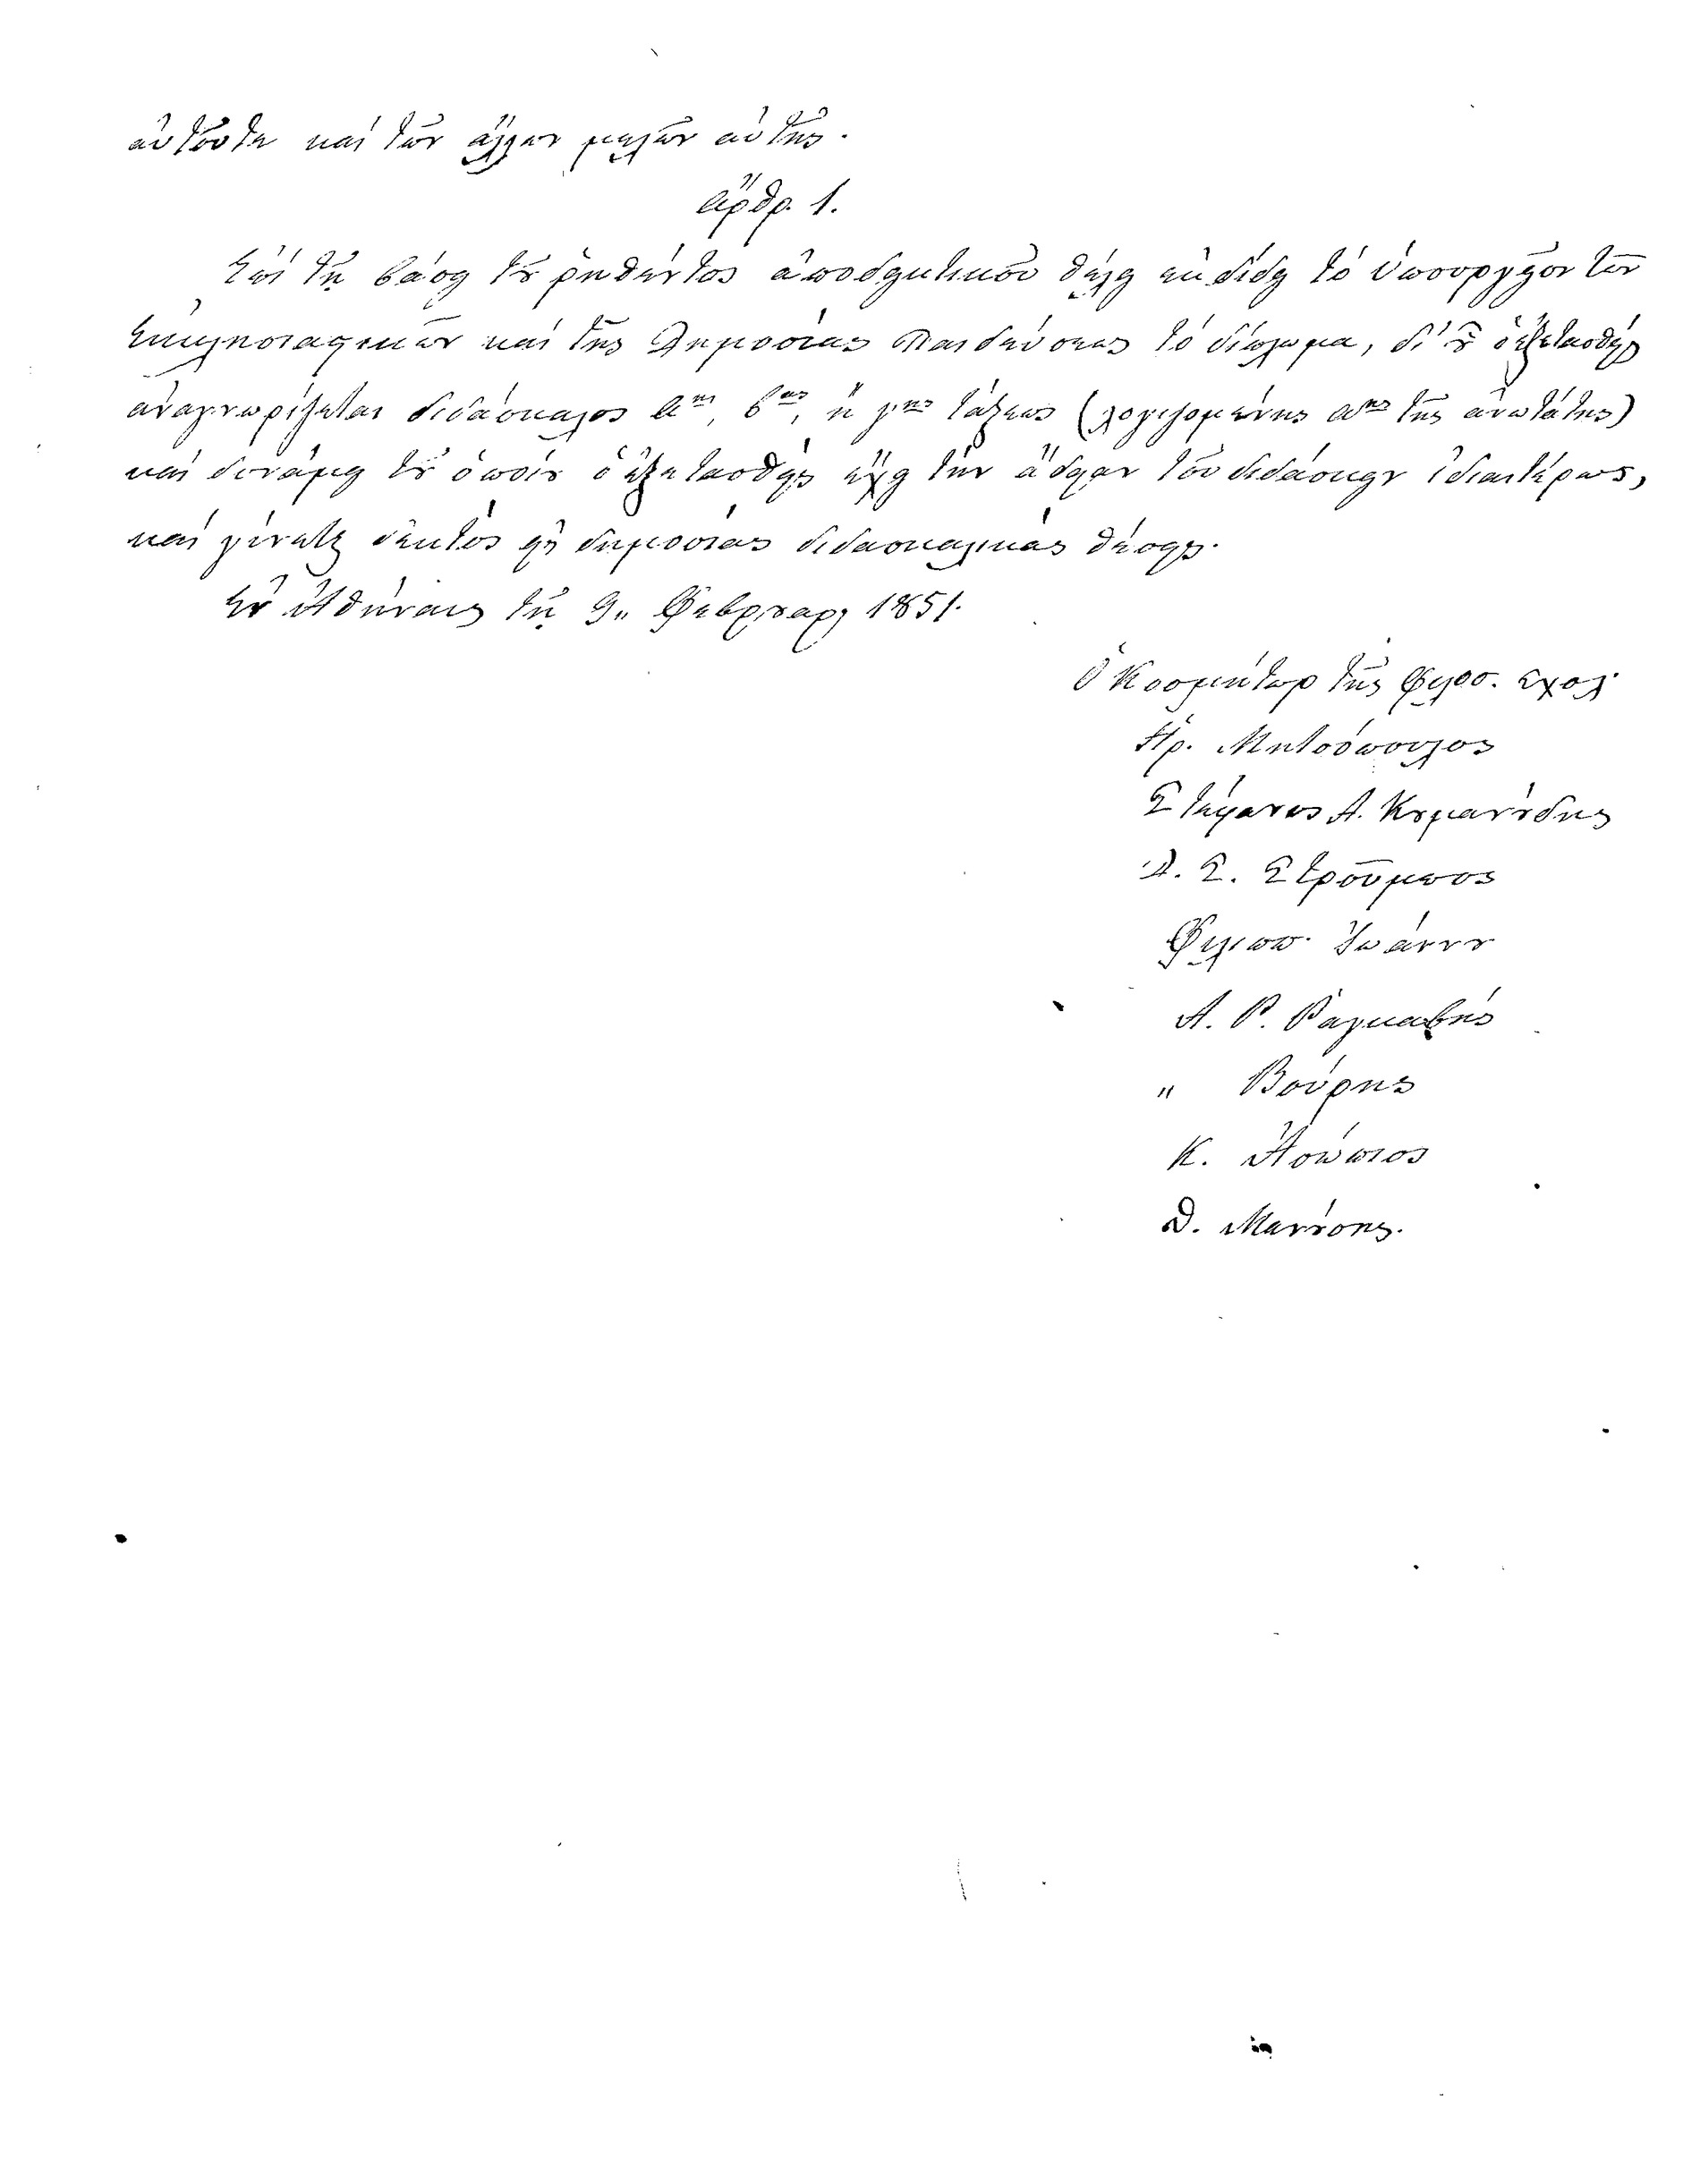 αὐτοῦτε καὶ τῶν ἄλλων μελῶν αὐτῆς.
Ἄρθρ. 1.
Ἐπὶ τῇ βάσει τοῦ ῥηθέντος ἀποδεικτικοῦ θέλει ἐκδίδει τὸ Ὑπουργεῖον τῶν
Ἐκκλησιαστικῶν καὶ τῆς Δημοσίας Παιδεύσεως τὸ δίπλωμα, δι' οὗ ὁ ἐξετασθεὶς
ἀναγνωρίζεται διδάσκαλος Αης, βας, ἢ γης τάξεως (λογιζομένης αης τῆς ἀνωτάτης)
καὶ δυνάμει τοῦ ὁποίου ὁ ἐξετασθεὶς ἔχει τὴν ἄδειαν τοῦ διδάσκειν ἰδιαιτέρως,
καὶ γίνεται δεκτὸς εἰς δημοσίας διδασκαλικὰς θέσεις.
Ἐν Ἀθήναις τῇ 9 Φεβρουαρ. 1851.
Ὁ Κοσμήτωρ τῆς Φιλοσ. Σχολ.
Ἡρ. Μητσόπουλος
Στέφανος Α. Κουμανούδης
Δ. Σ. Στροῦμπος
Φίλιππ. Ἰωάννου
Α. Ρ. Ῥαγκαβής
" Βούρης
Κ. Ἀσώπιος
Θ. Μανούσης.